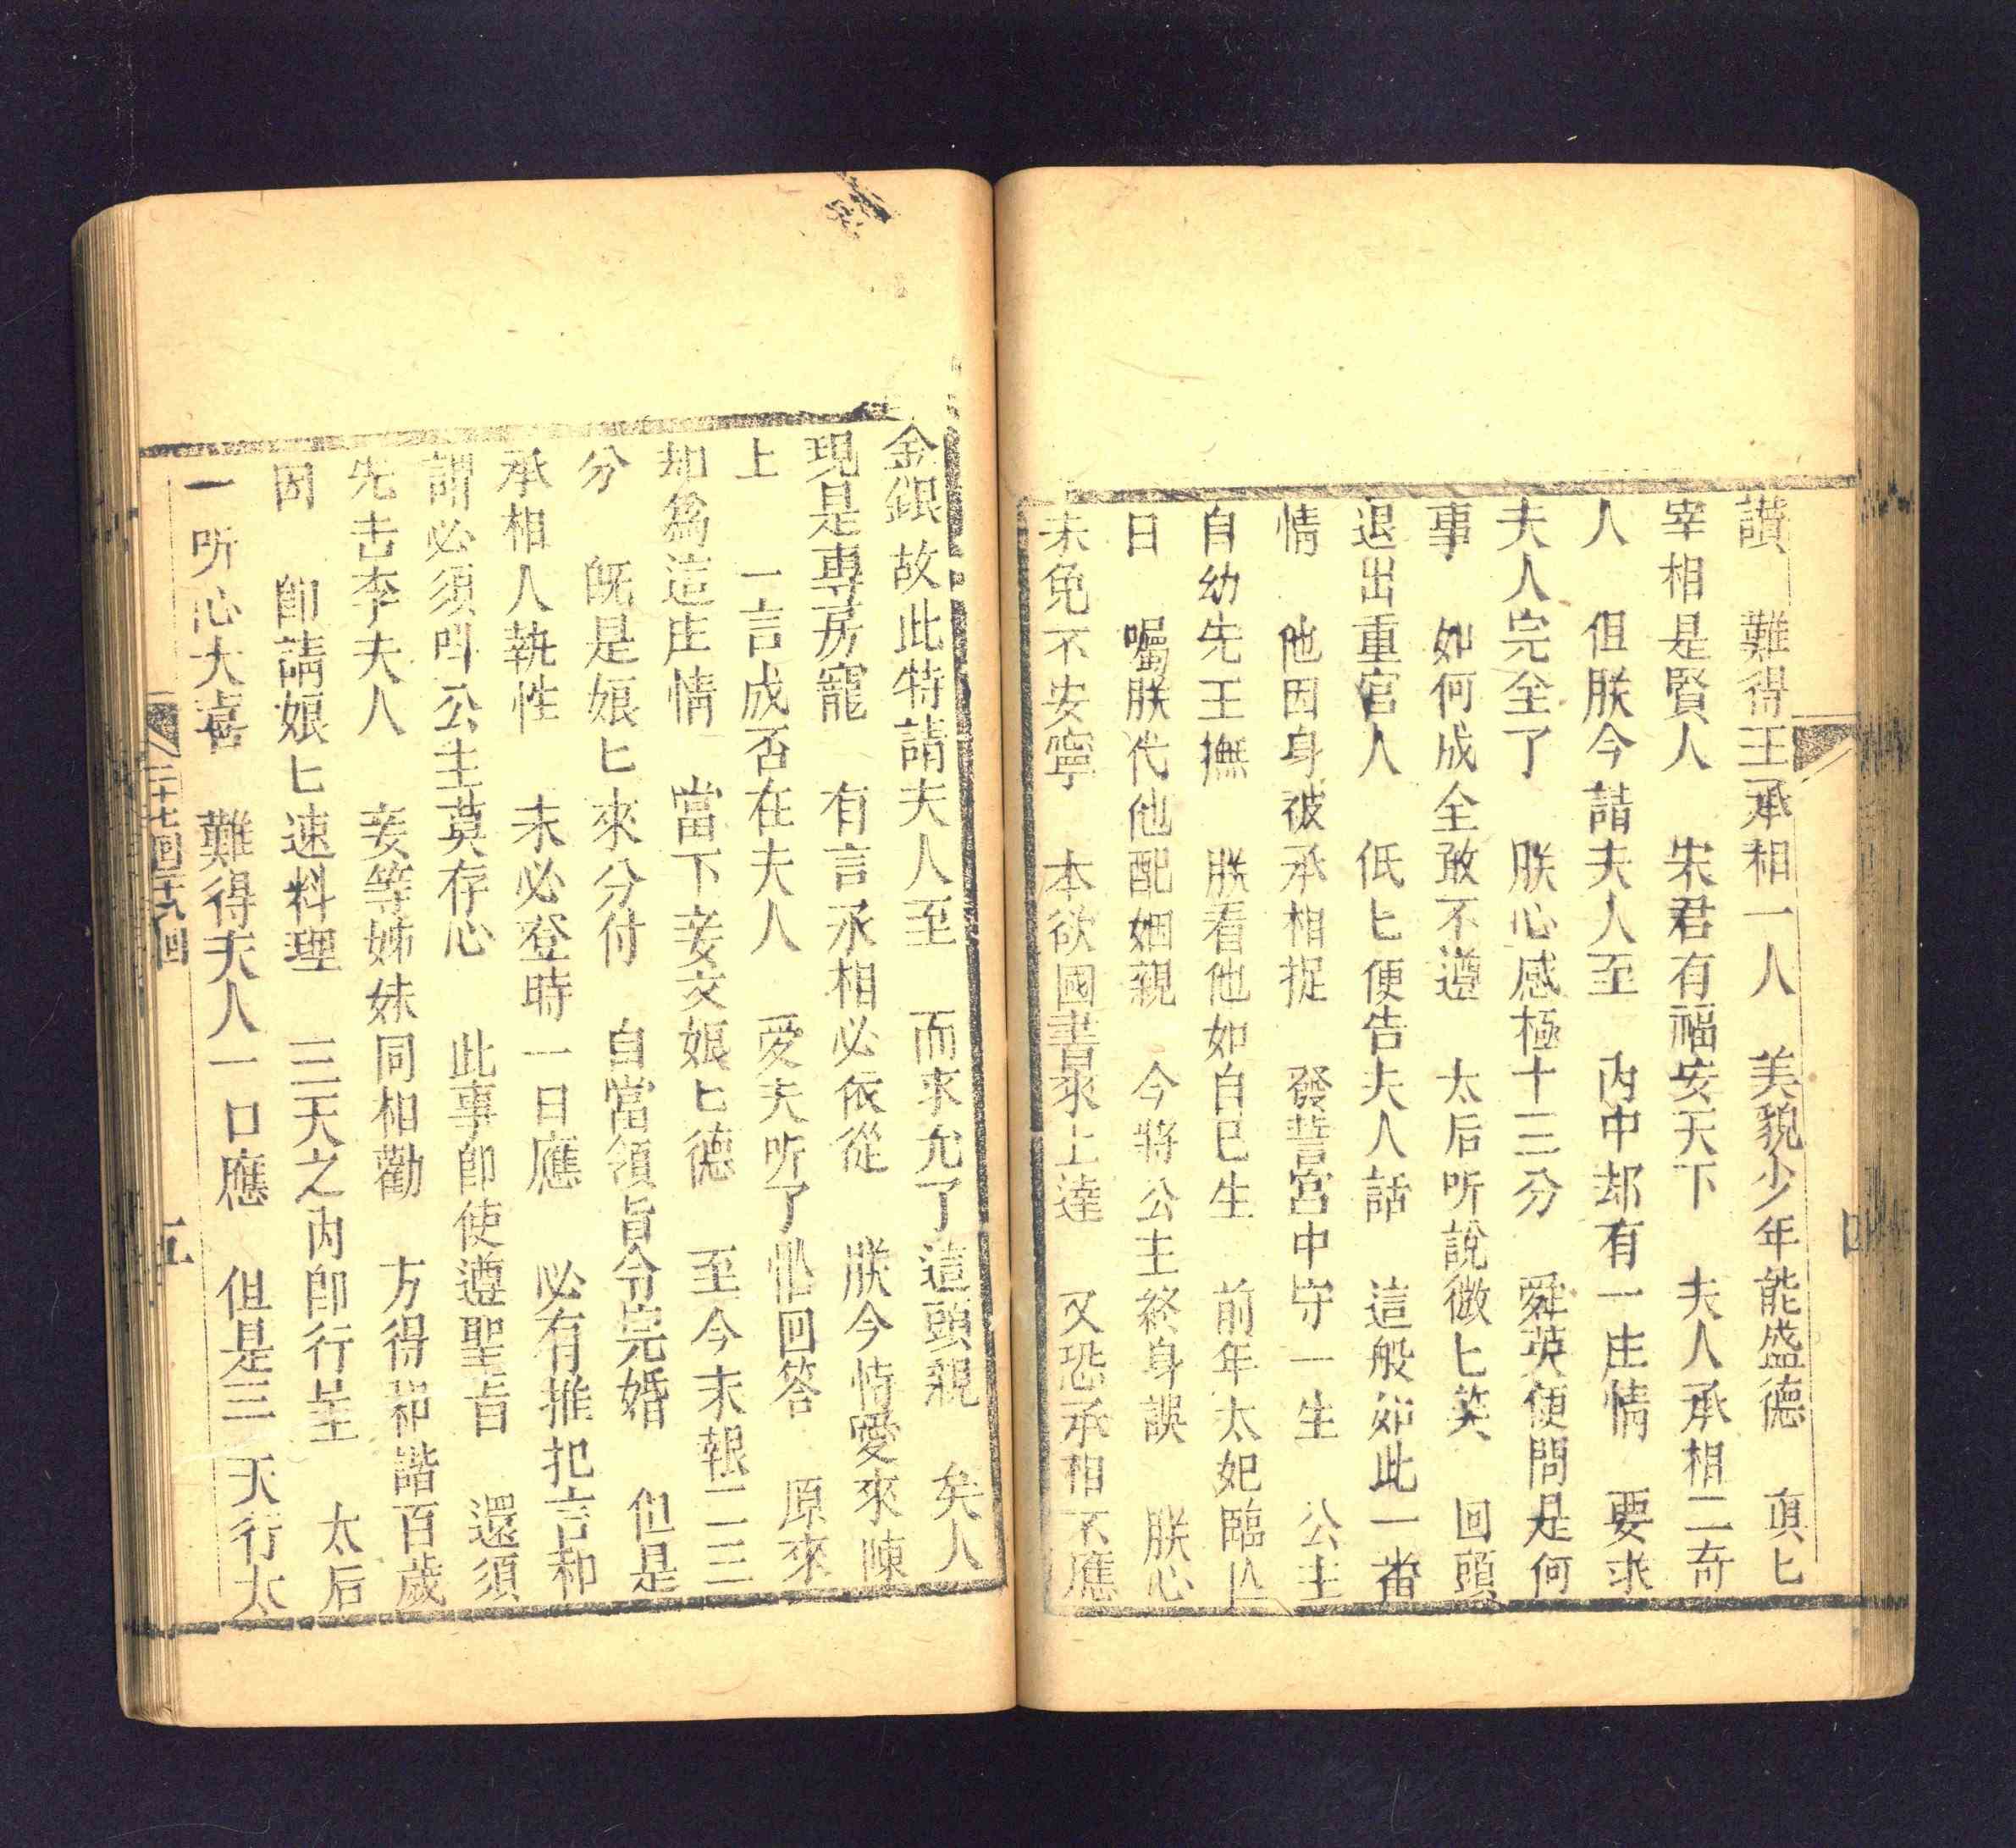 讃 難得王承相一人 美貌少年能盛德 真匕
宰相是賢人 朱君有福安天下 夫人承相二奇
人 但朕今請夫人至 內中却有一庄情 要求
夫人完全了 朕心感極十三分 舜英便問是何
事 如何成全敢不遵 太后听說微匕笑 回頭
退出重宮人 低匕便告夫人話 這般如此一番
情 他因身被承相捉 發誓宮中守一生 公主
自幼先王撫 朕看他如自已生 前年太妃臨亾
日 囑朕代他配姻親 今將公主終身誤 朕心
未免不安寧 本欲國書求上達 又恐承相不應
四
金銀 故此特請夫人至 而求允了這頭親 矣人
現是專房寵 有言承相必依從 朕今情愛來陳
上 一言成否在夫人 愛夫听了忙回答 原來
却為這庄情 當下妾交娘匕德 至今未報二三
分 旣是娘匕來分付 自當領旨令完婚 但是
承相人執性 未必登時一日應 必有推把言和
謂 必須呌公主莫存心 此事卽使遵聖旨 還須
先告李夫人 妾等姊妹同相勸 方得和諧百歲
因 卽請娘匕速料理 三天之內卽行呈 太后
一听心大喜 難得夫人一口應 但是三天行太
二十七回 二十八回
五